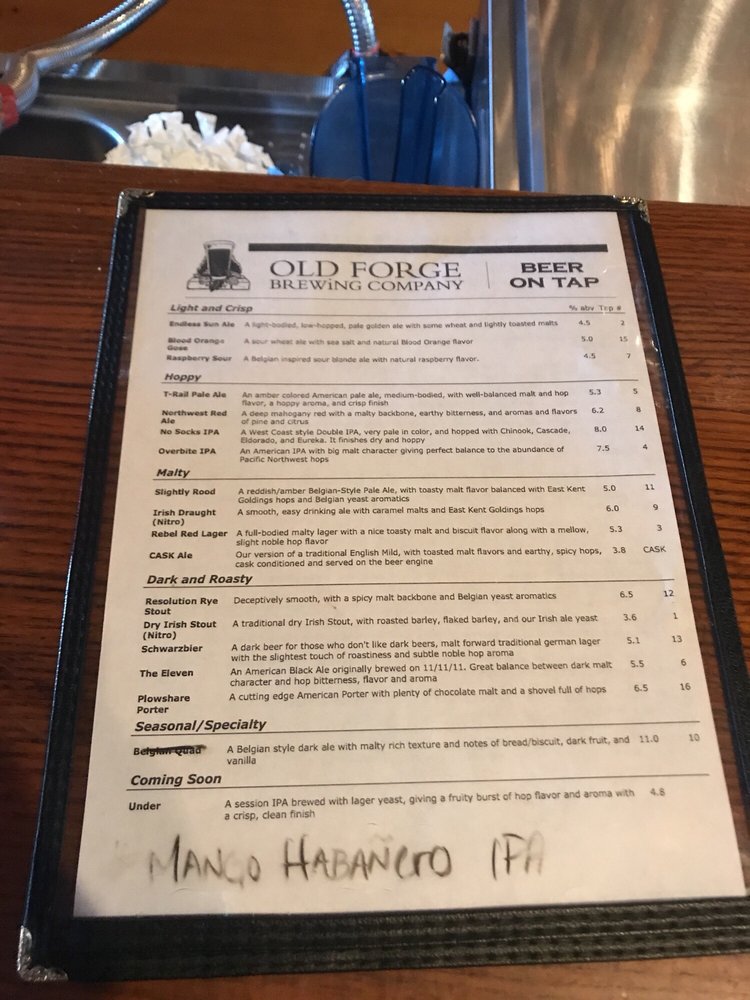 OLD FORGE
BREWING COMPANY
BEER
ON TAP
Light and Crisp % abv Tap #
Endless Sun Ale A light-bodied, low-hopped, pale golden ale with some wheat and lightly toasted malts 4.5 2
Blood Orange A sour wheat ale with sea salt and natural Blood Orange flavor 5.0 15
Gose
Raspberry Sour A Belgian inspired sour blonde ale with natural raspberry flavor. 4.5 7
Hoppy
T-Rail Pale Ale An amber colored American pale ale, medium-bodied, with well-balanced malt and hop 5.3 5
flavor, a hoppy aroma, and crisp finish
Northwest Red A deep mahogany red with a malty backbone, earthy bitterness, and aromas and flavors 6.2 8
Ale of pine and citrus
No Socks IPA A West Coast style Double IPA, very pale in color, and hopped with Chinook, Cascade, 8.0 14
Eldorado, and Eureka. It finishes dry and hoppy
Overbite IPA An American IPA with big malt character giving perfect balance to the abundance of 7.5 4
Pacific Northwest hops
Malty
Slightly Rood A reddish/amber Belgian-Style Pale Ale, with toasty malt flavor balanced with East Kent 5.0 11
Goldings hops and Belgian yeast aromatics
Irish Draught A smooth, easy drinking ale with caramel malts and East Kent Goldings hops 6.0 9
(Nitro)
Rebel Red Lager A full-bodied malty lager with a nice toasty malt and biscuit flavor along with a mellow, 5.3 3
slight noble hop flavor
CASK Ale Our version of a traditional English Mild, with toasted malt flavors and earthy, spicy hops, 3.8 CASK
cask conditioned and served on the beer engine
Dark and Roasty
Resolution Rye Deceptively smooth, with a spicy malt backbone and Belgian yeast aromatics 6.5 12
Stout
Dry Irish Stout A traditional dry Irish Stout, with roasted barley, flaked barley, and our Irish ale yeast 3.6 1
(Nitro)
Schwarzbier A dark beer for those who don't like dark beers, malt forward traditional german lager 5.1 13
with the slightest touch of roastiness and subtle noble hop aroma
The Eleven An American Black Ale originally brewed on 11/11/11. Great balance between dark malt 5.5 6
character and hop bitterness, flavor and aroma
Plowshare A cutting edge American Porter with plenty of chocolate malt and a shovel full of hops 6.5 16
Porter
Seasonal/Specialty
Belgian Quad A Belgian style dark ale with malty rich texture and notes of bread/biscuit, dark fruit, and 11.0 10
vanilla
Coming Soon
Under A session IPA brewed with lager yeast, giving a fruity burst of hop flavor and aroma with 4.8
a crisp, clean finish
MANGO HABAÑERO IPA